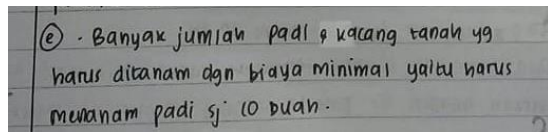 ⓔ. Banyak jumlah padi & kacang tanah yg
harus ditanam dgn biaya minimal yaitu harus
menanam padi sj 10 buah.